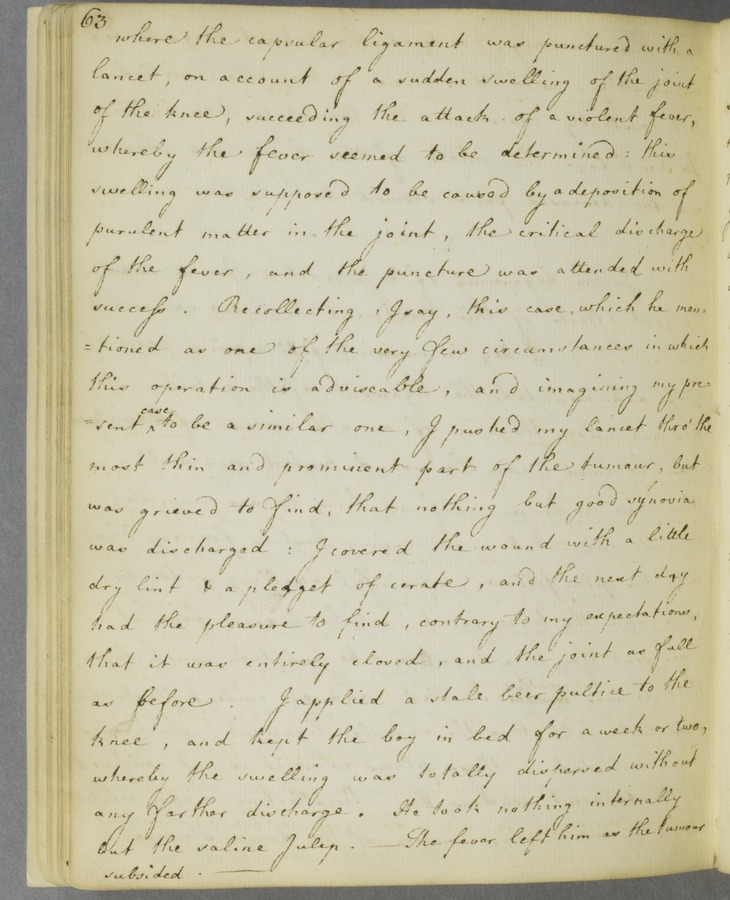 63
where the capsular ligament was punctured with a
lancet, on account of a sudden swelling of the joint
of the knee, succeeding the attack of a violent fever,
whereby the fever seemed to be determined: this
swelling was suppos'd to be caused by a deposition of
purulent matter in the joint, the critical discharge
of the fever, and the puncture was attended with
success. Recollecting, I say, this case, which he men=
=tioned as one of the very few circumstances in which
this operation is adviseable, and imagining my pre=
=sent case to be a similar one, I pushed my lancet thro' the
most thin and prominent part of the tumour, but
was grieved to find, that nothing but good synovia
was discharged: I covered the wound with a little
dry lint & a pledget of cerate, and the next day
had the pleasure to find, contrary to my expectations,
that it was entirely closed, and the joint as full
as before. I applied a stale beer pultice to the
knee, and kept the boy in bed for a week or two,
whereby the swelling was totally dispersed without
any farther discharge. He took nothing internally
but the saline Julep. — The fever left him as the tumour
subsided. —